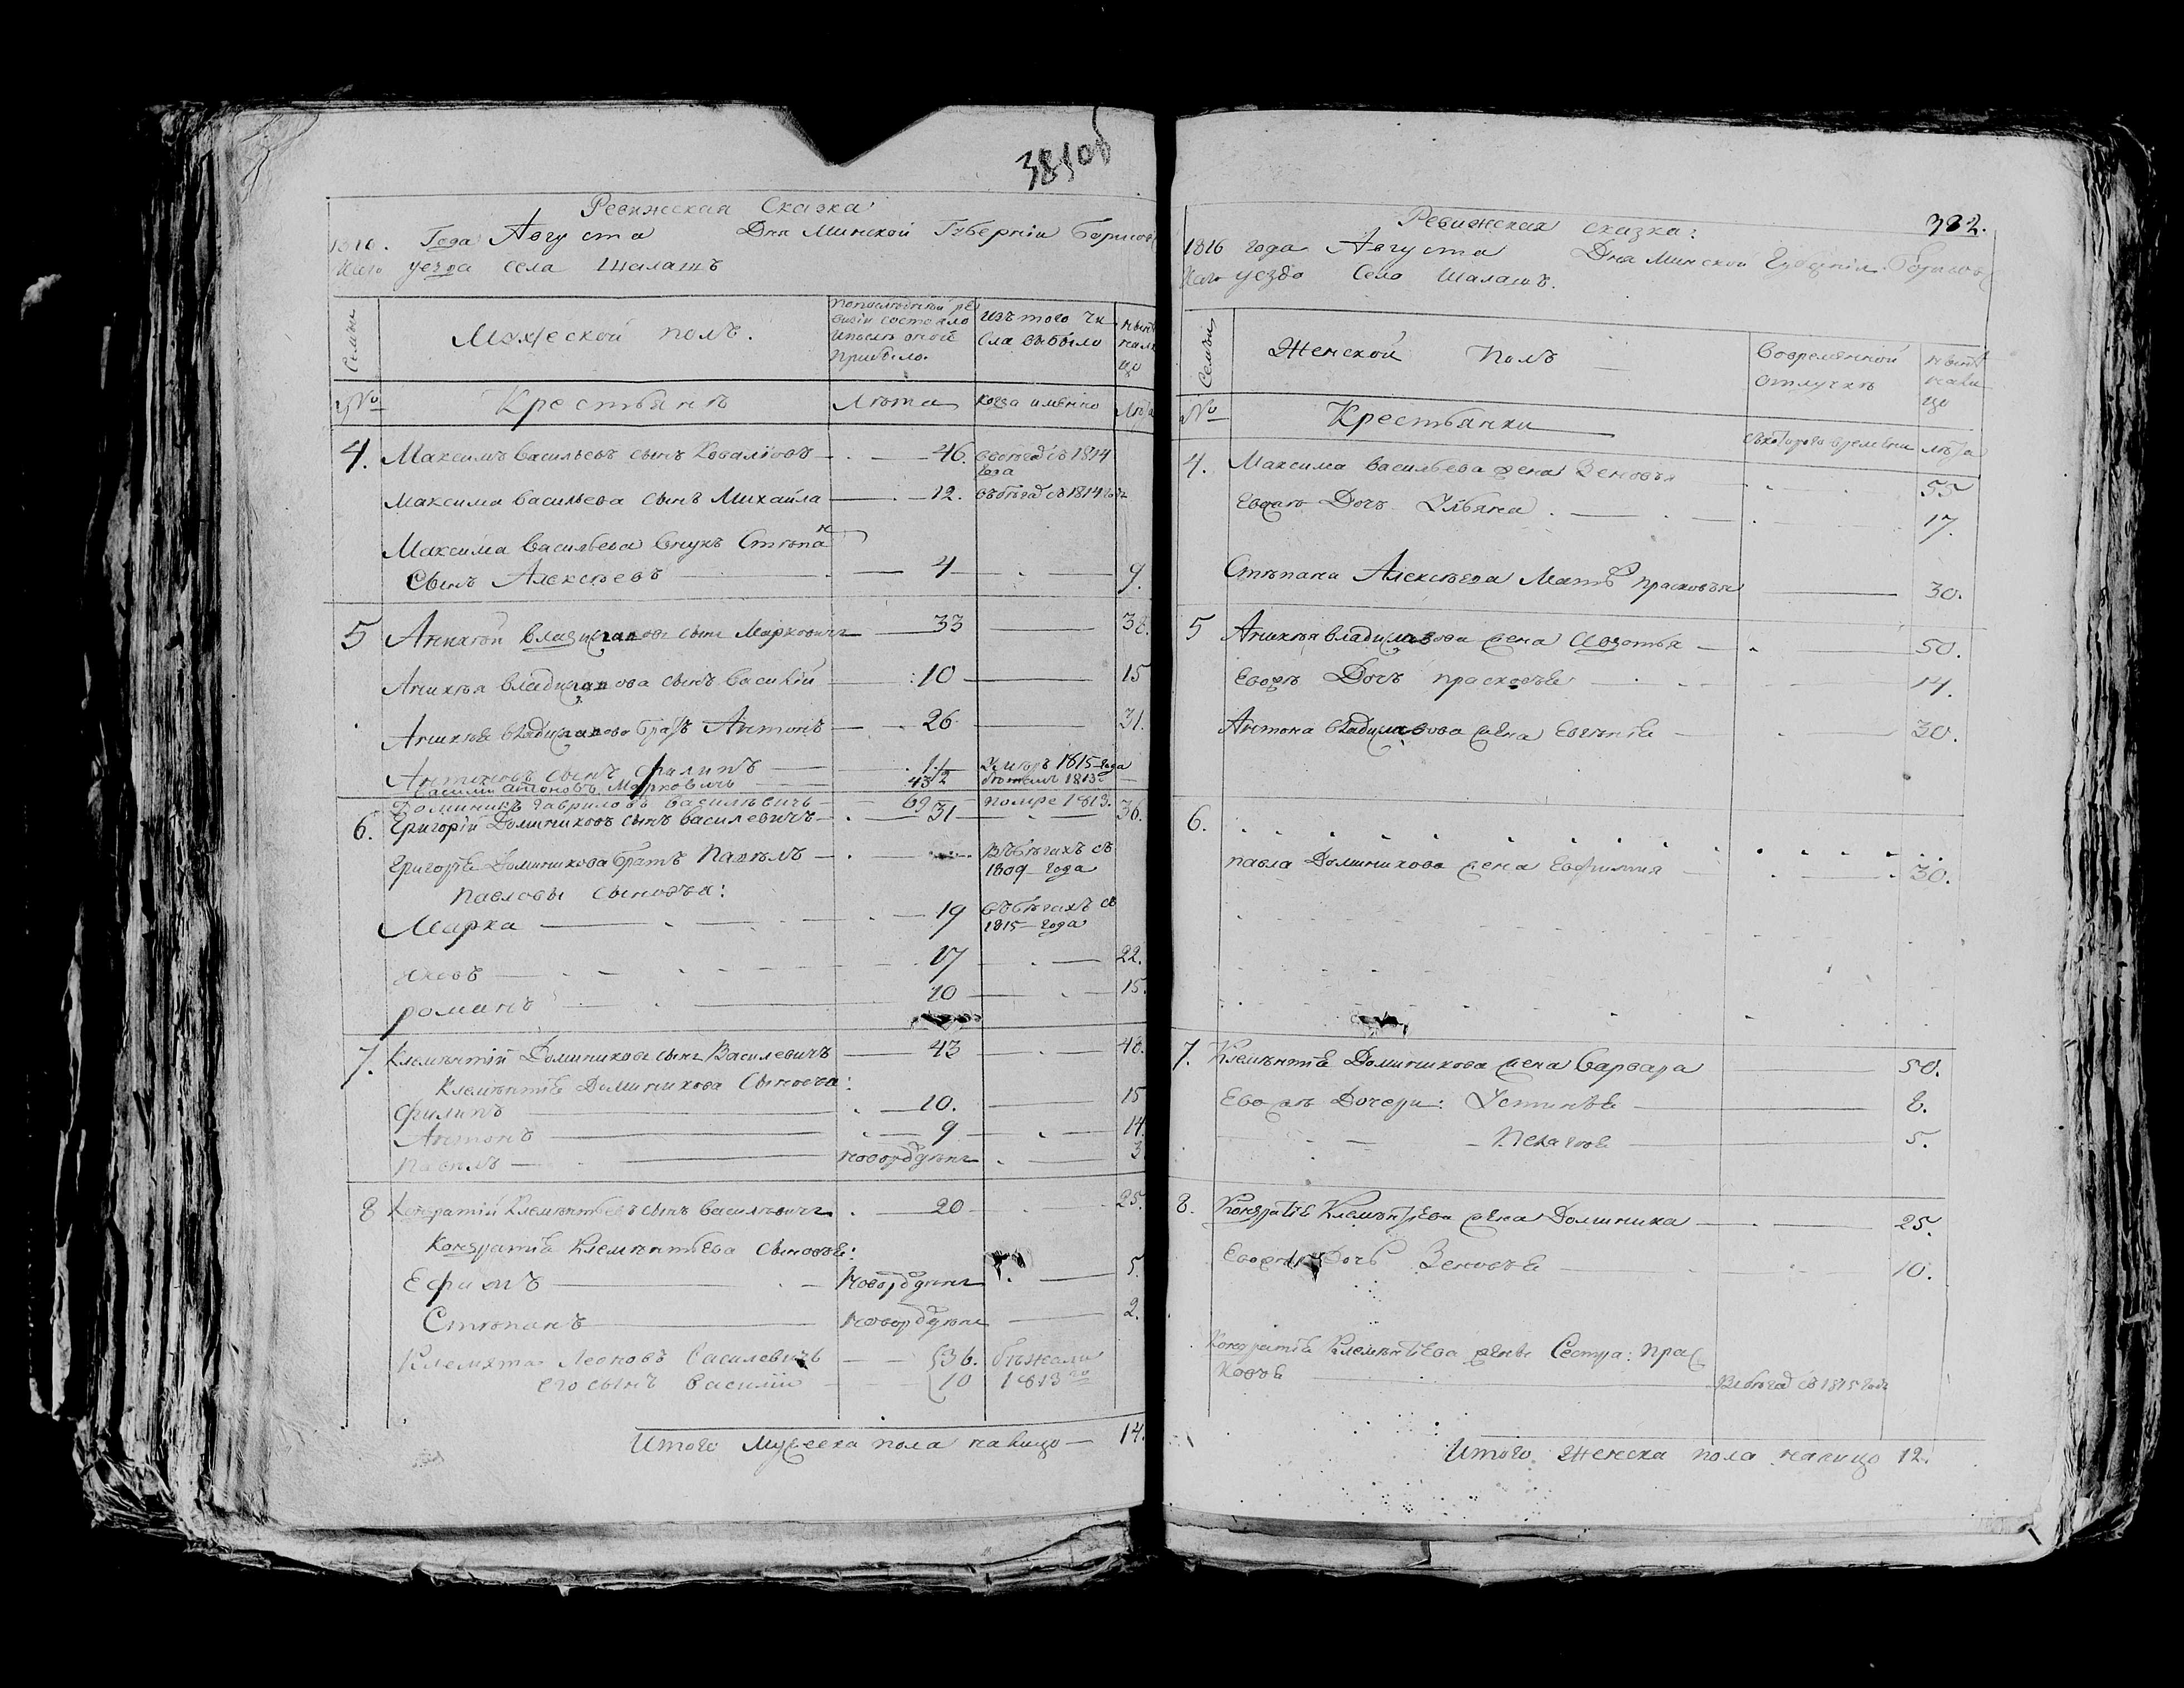 381об
Ревижская Сказка
1816. Года Августа Дня Минской Губерніи Борисов
скаго уезда села Шалашъ
Семьи
Мужеской полъ.
По последней ре
визіи состояло
и после оной
прибыло.
Изъ того чи
сла выбыло
Ныне
нали
цо
№
Крестьянъ
Лета
когда именно
Лета
4. Максимъ Васильевъ сынъ Ковалiовъ 46. въ бегах съ 1814
года
Максима Васильева сынъ Михайла 12. въ бегах съ 1814 года
Максима Васильева внукъ Стѣпан
Сынъ Алексѣевъ 4 9.
5 Аникѣй Владиславовъ сынъ Марковичъ 33 38.
Аникѣя Владиславова сынъ Василiй 10 15
Аникѣя Владиславова братъ Антонъ 26 31.
Антоновъ сынъ Филипъ 1 1/2 Умеръ 1815 года
Василiй Антоновъ Марковичъ 43 бежалъ 1813
Доминикъ Гавриловъ Васильевичъ 69 помре 1813.
6. Григорiй Доминиковъ сынъ Василевичъ 31 36.
Григорiя Доминикова братъ Павѣлъ въ бѣгахъ съ
1809 года
Павловы сыновья:
Марка 19 въ бѣгахъ съ
1815 года
Яковъ 17 22.
романъ 10 15.
7. Клемѣнтiй Доминиковъ сынъ Василевичъ 43 48.
Клемѣнтiя Доминикова Сыновья:
Филипъ 10. 15
Антонъ 9 14.
Павѣлъ новорожденъ 3
8 Кондратiй Клемѣнтьевъ сынъ Василѣвичъ 20 25.
Кондратiя Клемѣнтьева сыновья:
Ефимъ Новорожденъ 5.
Стѣпанъ новорожденъ 2.
Клемята Леоновъ Василевичъ 36. бѣжали
его сынъ Василiй 10 1813го
Итого Мужеска пола налицо 14.
382.
Ревижская сказка:
1816 года Августа Дня Минской Губернiи Борисов
скаго уезда Села Шалашъ.
Семьи
Женской Полъ
Во временной
отлучке
Ныне
нали
цо
№
Крестьянки
съ котораго времени
лѣта
4. Максима Васильева жена Зеновья 55
Евоже Дочь Ульяна 17.
Стѣпана Алексѣева Мать прасковья 30.
5 Аникѣя Владиславова жена 50.
Евожъ Дочь прасковья 14.
Антона Владиславова жена Евгѣнiя 30.
6.
павла Доминикова жена Евфимiя 30.
7. Клемѣнтiя Доминикова жена Варвара 50.
Евожъ Дочери: Устинья 8.
Пелагея 5.
8. Кондратiя Клемѣнтьева жена Доминика 25.
Евожъ Дочь Зеновья 10.
Кондратiя Клемѣнтьева жены Сестра: Прас
ковья въ бегах съ 1815 года
Итого Женска пола налицо 12.